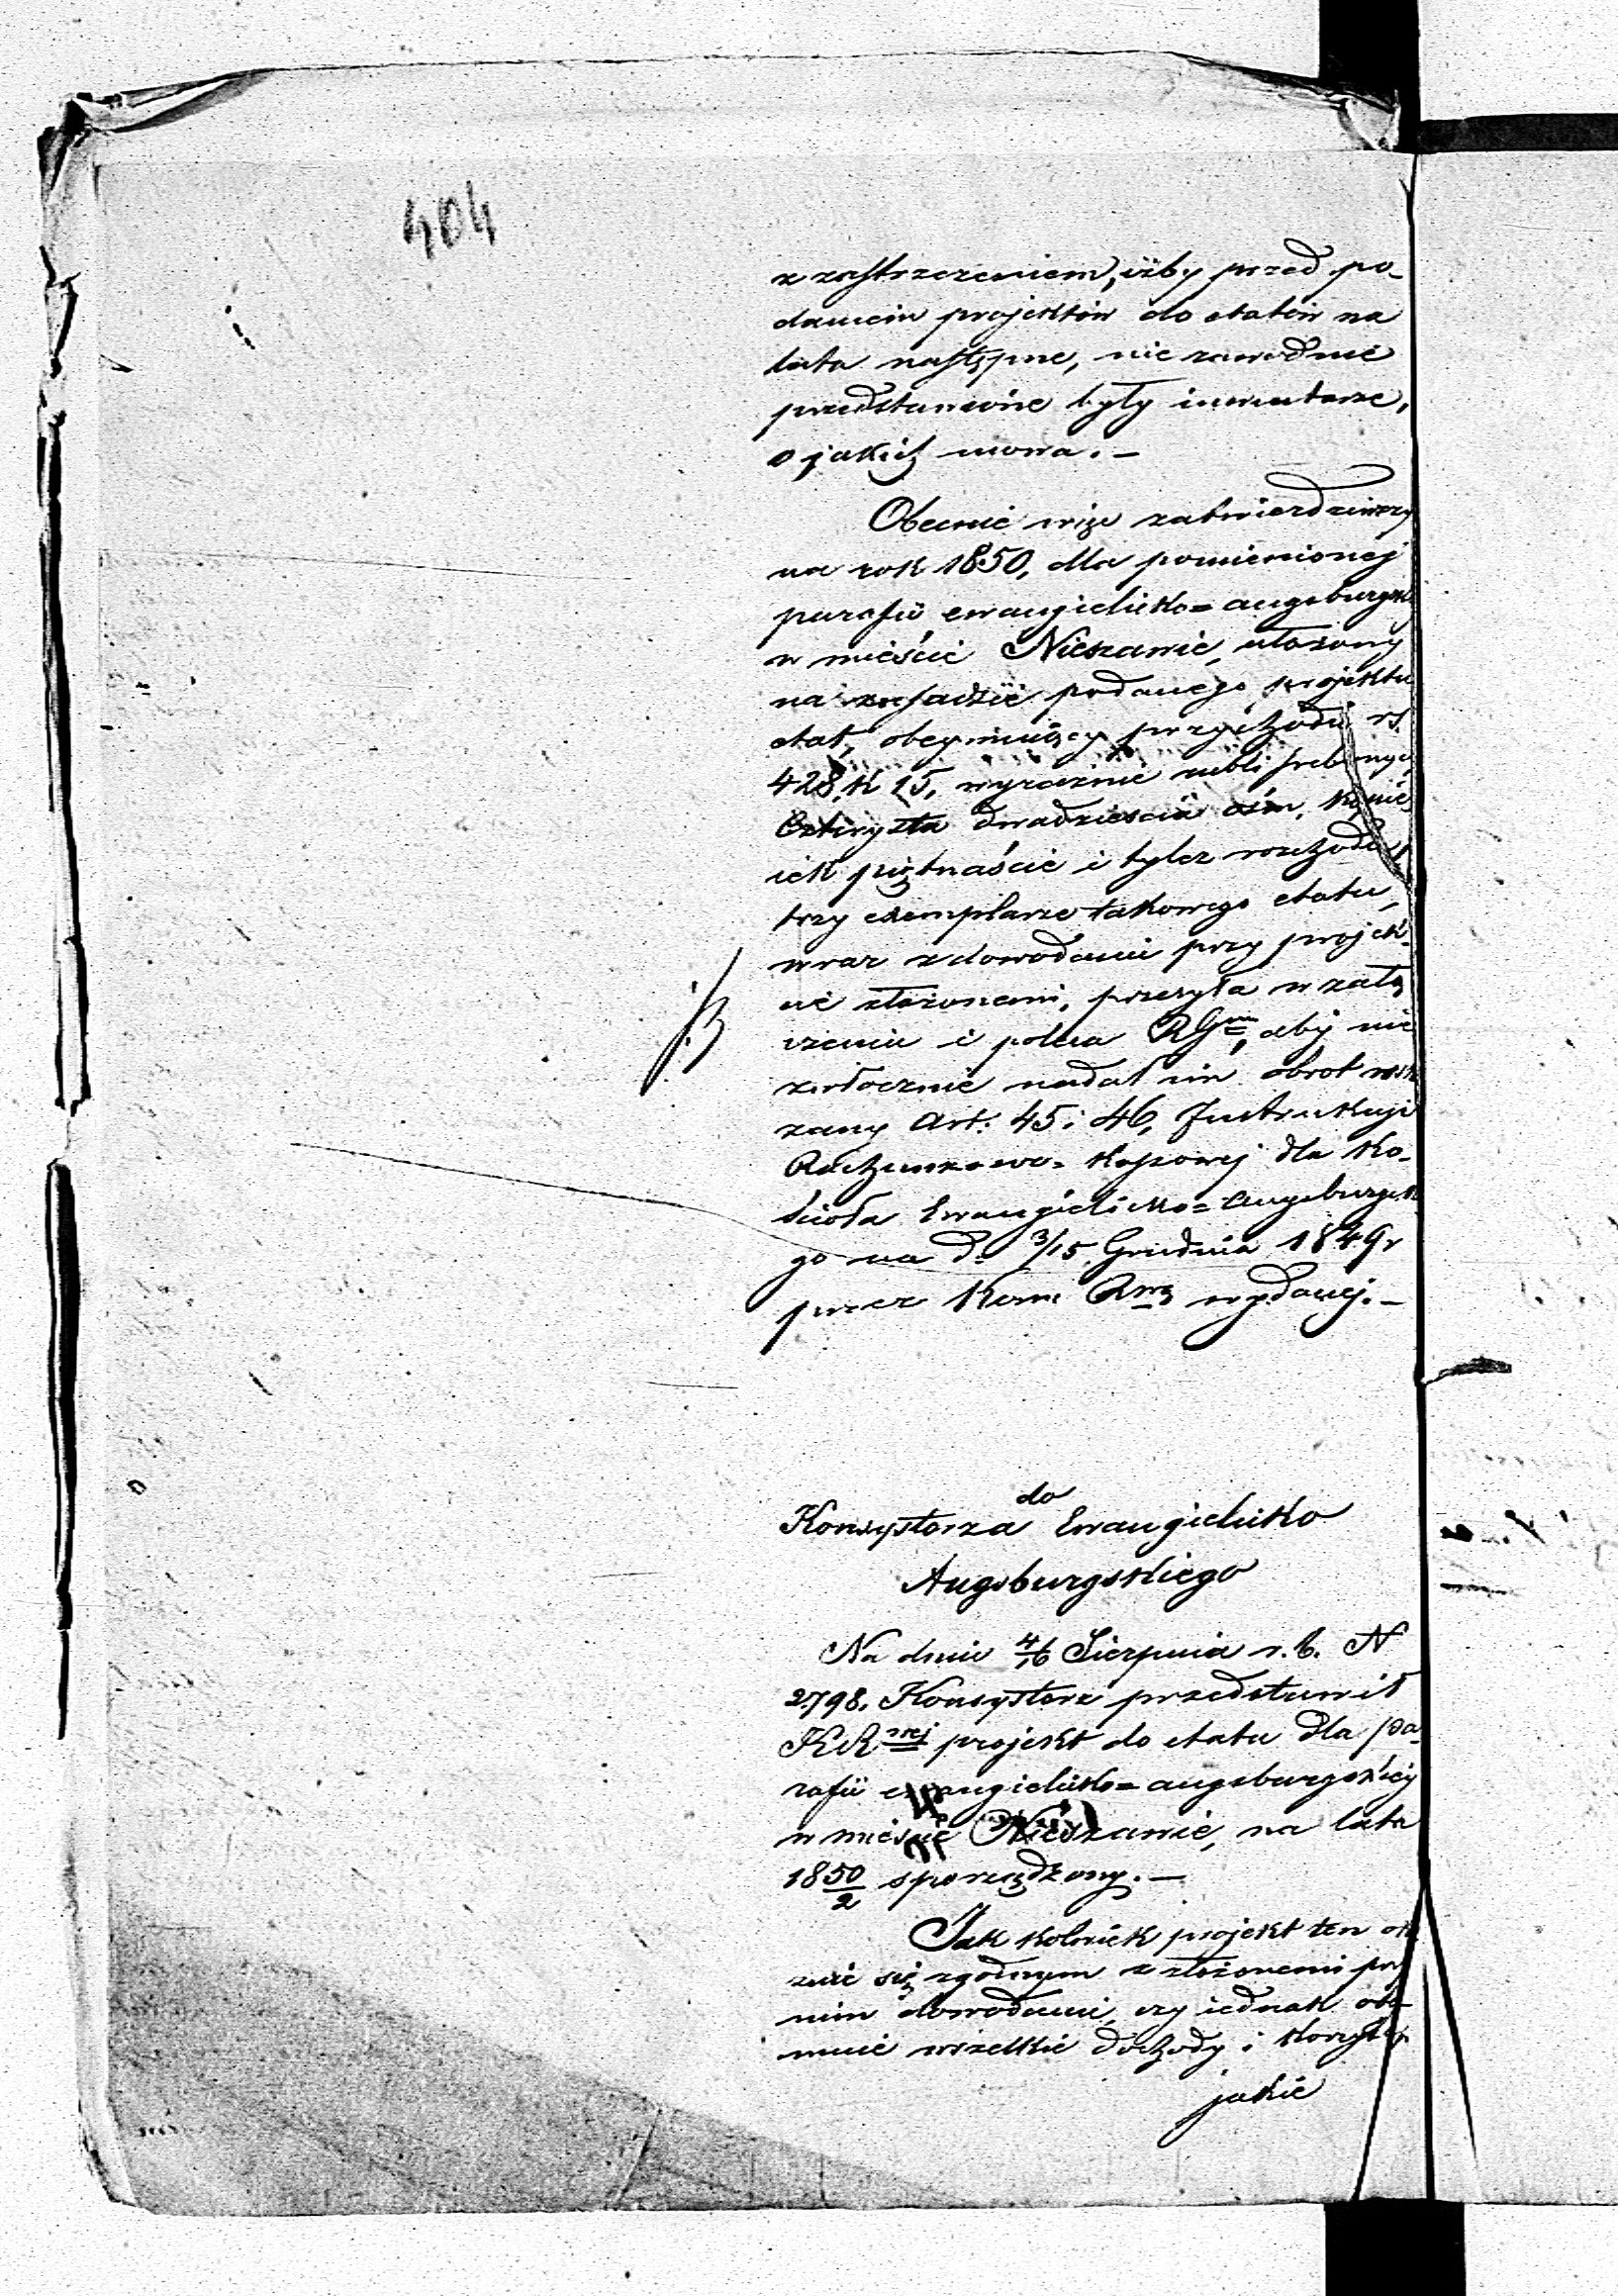 404
z zastrzeżeniem, iżby przed po-
daniem projektów do etatów na
lata następne, nie zawodnie
przedstawione były inwentarze,
o jakich mowa. –
Obecnie więc zatwierdziwszy
na rok 1850, dla pomienionej
parafii ewangielicko=augsburgsk
w mieście Nieszawie, ułożony
na zasadzie podanego projektu
etat, obeymuiący przychodu rs.
428, k 15, wyraźnie rubli srebrnych
Czterysta dwadzieścia ośm, kopie
iek piętnaście i tyleż rozchodu,
trzy exemplarze takowego etatu,
wraz z dowodami przy projek-
cie złożonemi, przesyła w załą
czeniu i poleca RGm, aby nie
zwłocznie nadał im obrot wska
zany Art: 45 i 46, Instrukcyi
Rachunkowo=kassowej dla Ko-
ścioła Ewangielicko=Augsburgsk
go na d. 3/15 Grudnia 1849 r
przez Kom Rną wydanej. –
do
Konsystorza Ewangielicko
Augsburgskiego
Na dniu 4/16 Sierpnia r. b. N
2798. Konsystorz przedstawił
KR projekt do etatu dla pa-
rafii ewangielicko=augsburgskiej
w mieście Nieszawie, na lata
1850/2 sporządzony. –
Jak kolwiek projekt ten oka
zuie się zgodnym z złożonemi przy
nim dowodami, czy iednak obe-
muie wszelkie dochody i korzyści
jakie